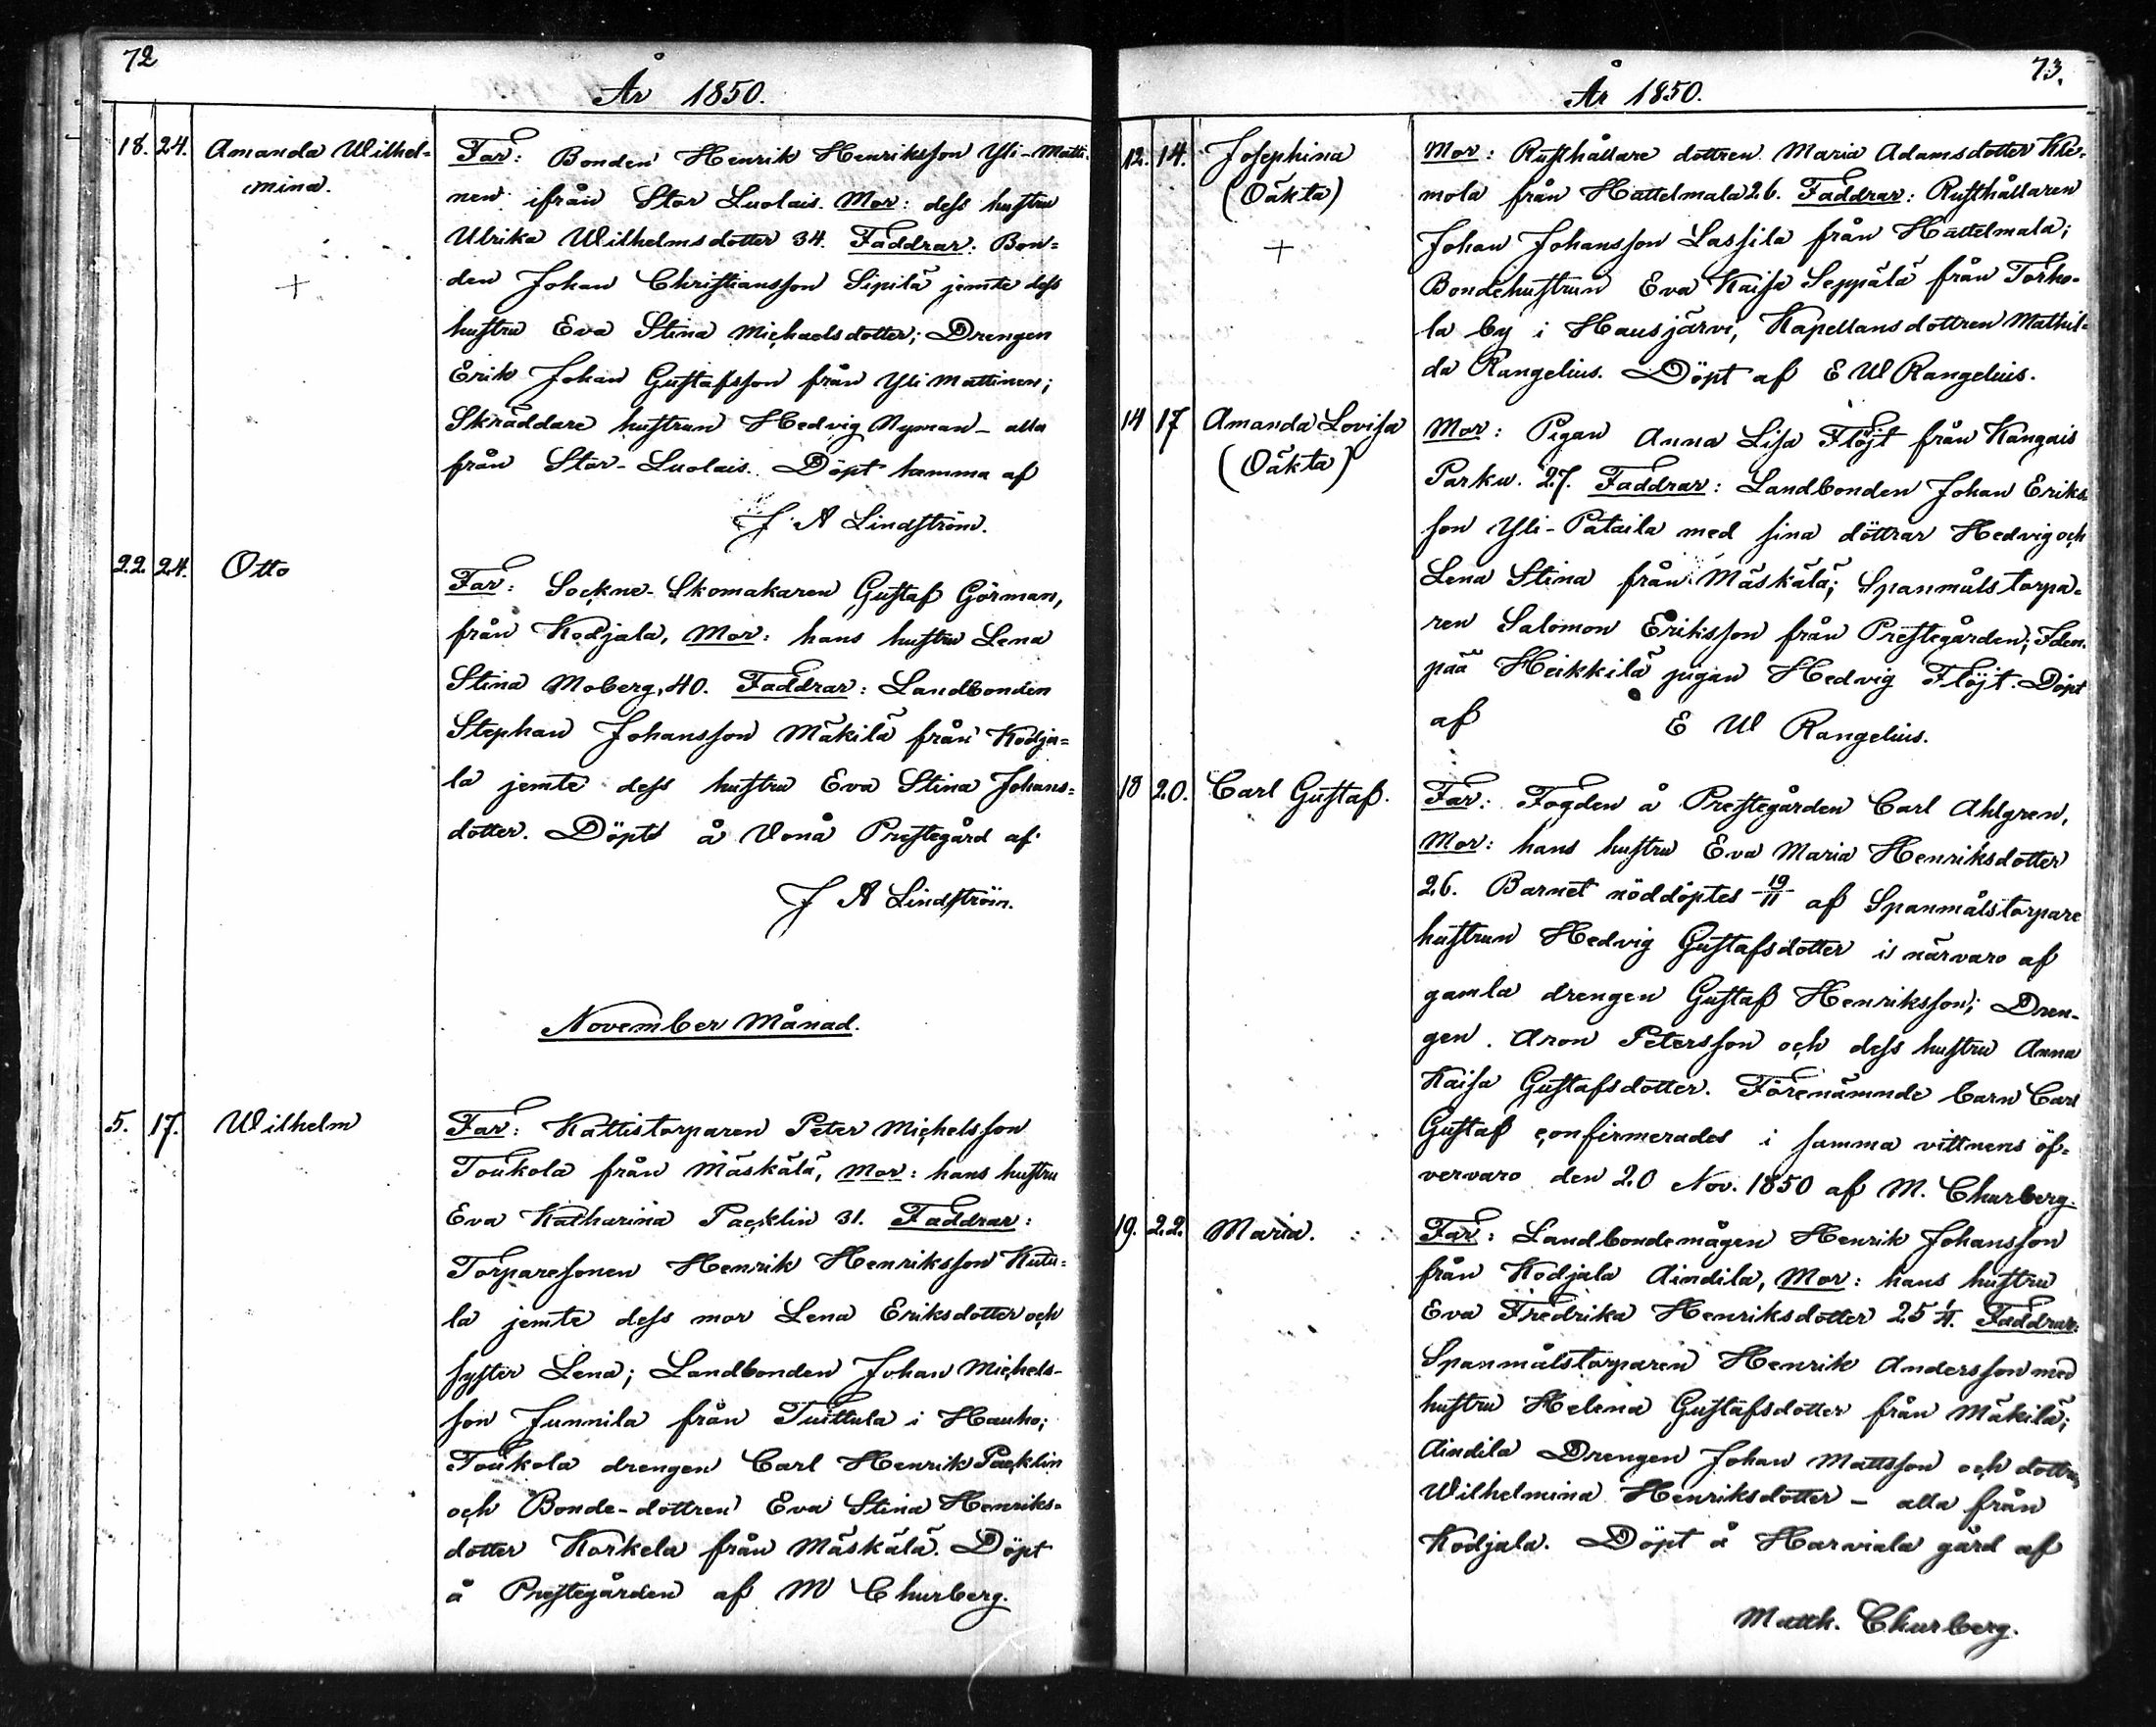 72
År 1850.
18. 24. Amanda Wilhel=
mina.
Far: Bonden Henrik Henriksson Yli-Matti-
nen ifrån Stor Luolais. Mor: dess hustru
Ulrika Wilhelmsdotter 34. Faddrar: Bon=
den Johan Christiansson Sipilä jemte dess
hustru Eva Stina Michaelsdotter; Drengen
Erik Johan Gustafsson från Yli Mattinen;
Skräddare hustrun Hedvig Nyman - alla
från Stor-Luolais. Döpt hemma af
J. A Lindström.
22. 24. Otto
Far: Sockne-Skomakaren Gustaf Görman,
från Kodjala, Mor: hans hustru Lena
Stina Moberg, 40. Faddrar: Landbonden
Stephan Johansson Mäkilä från Kodja=
la jemte dess hustru Eva Stina Johans=
dotter. Döpt å Vonå Prestegård af
J A Lindström.
November Månad.
5. 17. Wilhelm
Far: Kattistorparen Peter Michelsson
Toukola från Mäskälä, Mor: hans hustru
Eva Katharina Packlin 31. Faddrar:
Torparesonen Henrik Henriksson Kutu=
la jemte dess mor Lena Eriksdotter och
syster Lena; Landbonden Johan Michels-
son Junnila från Tuittula i Hauho;
Toukola drengen Carl Henrik Packlin
och Bonde-dottren Eva Stina Henriks=
dotter Korkela från Mäskälä. Döpt
å Prestegården af M Churberg.
73.
År 1850.
12. 14. Josephina
(Oäkta)
Mor: Rusthållare dottren Maria Adamsdotter Kle-
mola från Hattelmala 26. Faddrar: Rusthållaren
Johan Johansson Lassila från Hattelmala;
Bondehustrun Eva Kaisa Seppälä från Torho-
la by i Hausjärvi, Kapellans dottren Mathil-
da Rangelius. Döpt af E W Rangelius.
14 17 Amanda Lovisa
(Oäkta)
Mor: Pigan Anna Lisa Flöjt från Kangais
Parku. 27. Faddrar: Landbonden Johan Eriks-
son Yli-Pataila med sina döttrar Hedvig och
Lena Stina från Mäskälä; Spanmålstorpa-
ren Salomon Eriksson från Prestegården; Iden-
pää Heikkilä pigan Hedvig Flöjt. Döpt
af E W Rangelius.
18 20. Carl Gustaf.
Far: Fogden å Prestegården Carl Ahlgren,
Mor: hans hustru Eva Maria Henriksdotter
26. Barnet nöddöptes 19/11 af Spanmålstorpare
hustrun Hedvig Gustafsdotter i närvaro af
gamla drengen Gustaf Henriksson; Dren-
gen Aron Petersson och dess hustru Anna
Kaisa Gustafsdotter. Förenämnde barn Carl
Gustaf confirmerades i samma vittnens öf-
vervaro den 20 Nov. 1850 af M. Churberg.
19. 22. Maria.
Far: Landbondemågen Henrik Johansson
från Kodjala Aindila, Mor: hans hustru
Eva Fredrika Henriksdotter 25 1/4. Faddrar:
Spanmålstorparen Henrik Andersson med
hustru Helena Gustafsdotter från Mäkilä;
Aindila Drengen Johan Mattsson och dottren
Wilhelmina Henriksdotter - alla från
Kodjala. Döpt å Harviala gård af
Matth. Churberg.